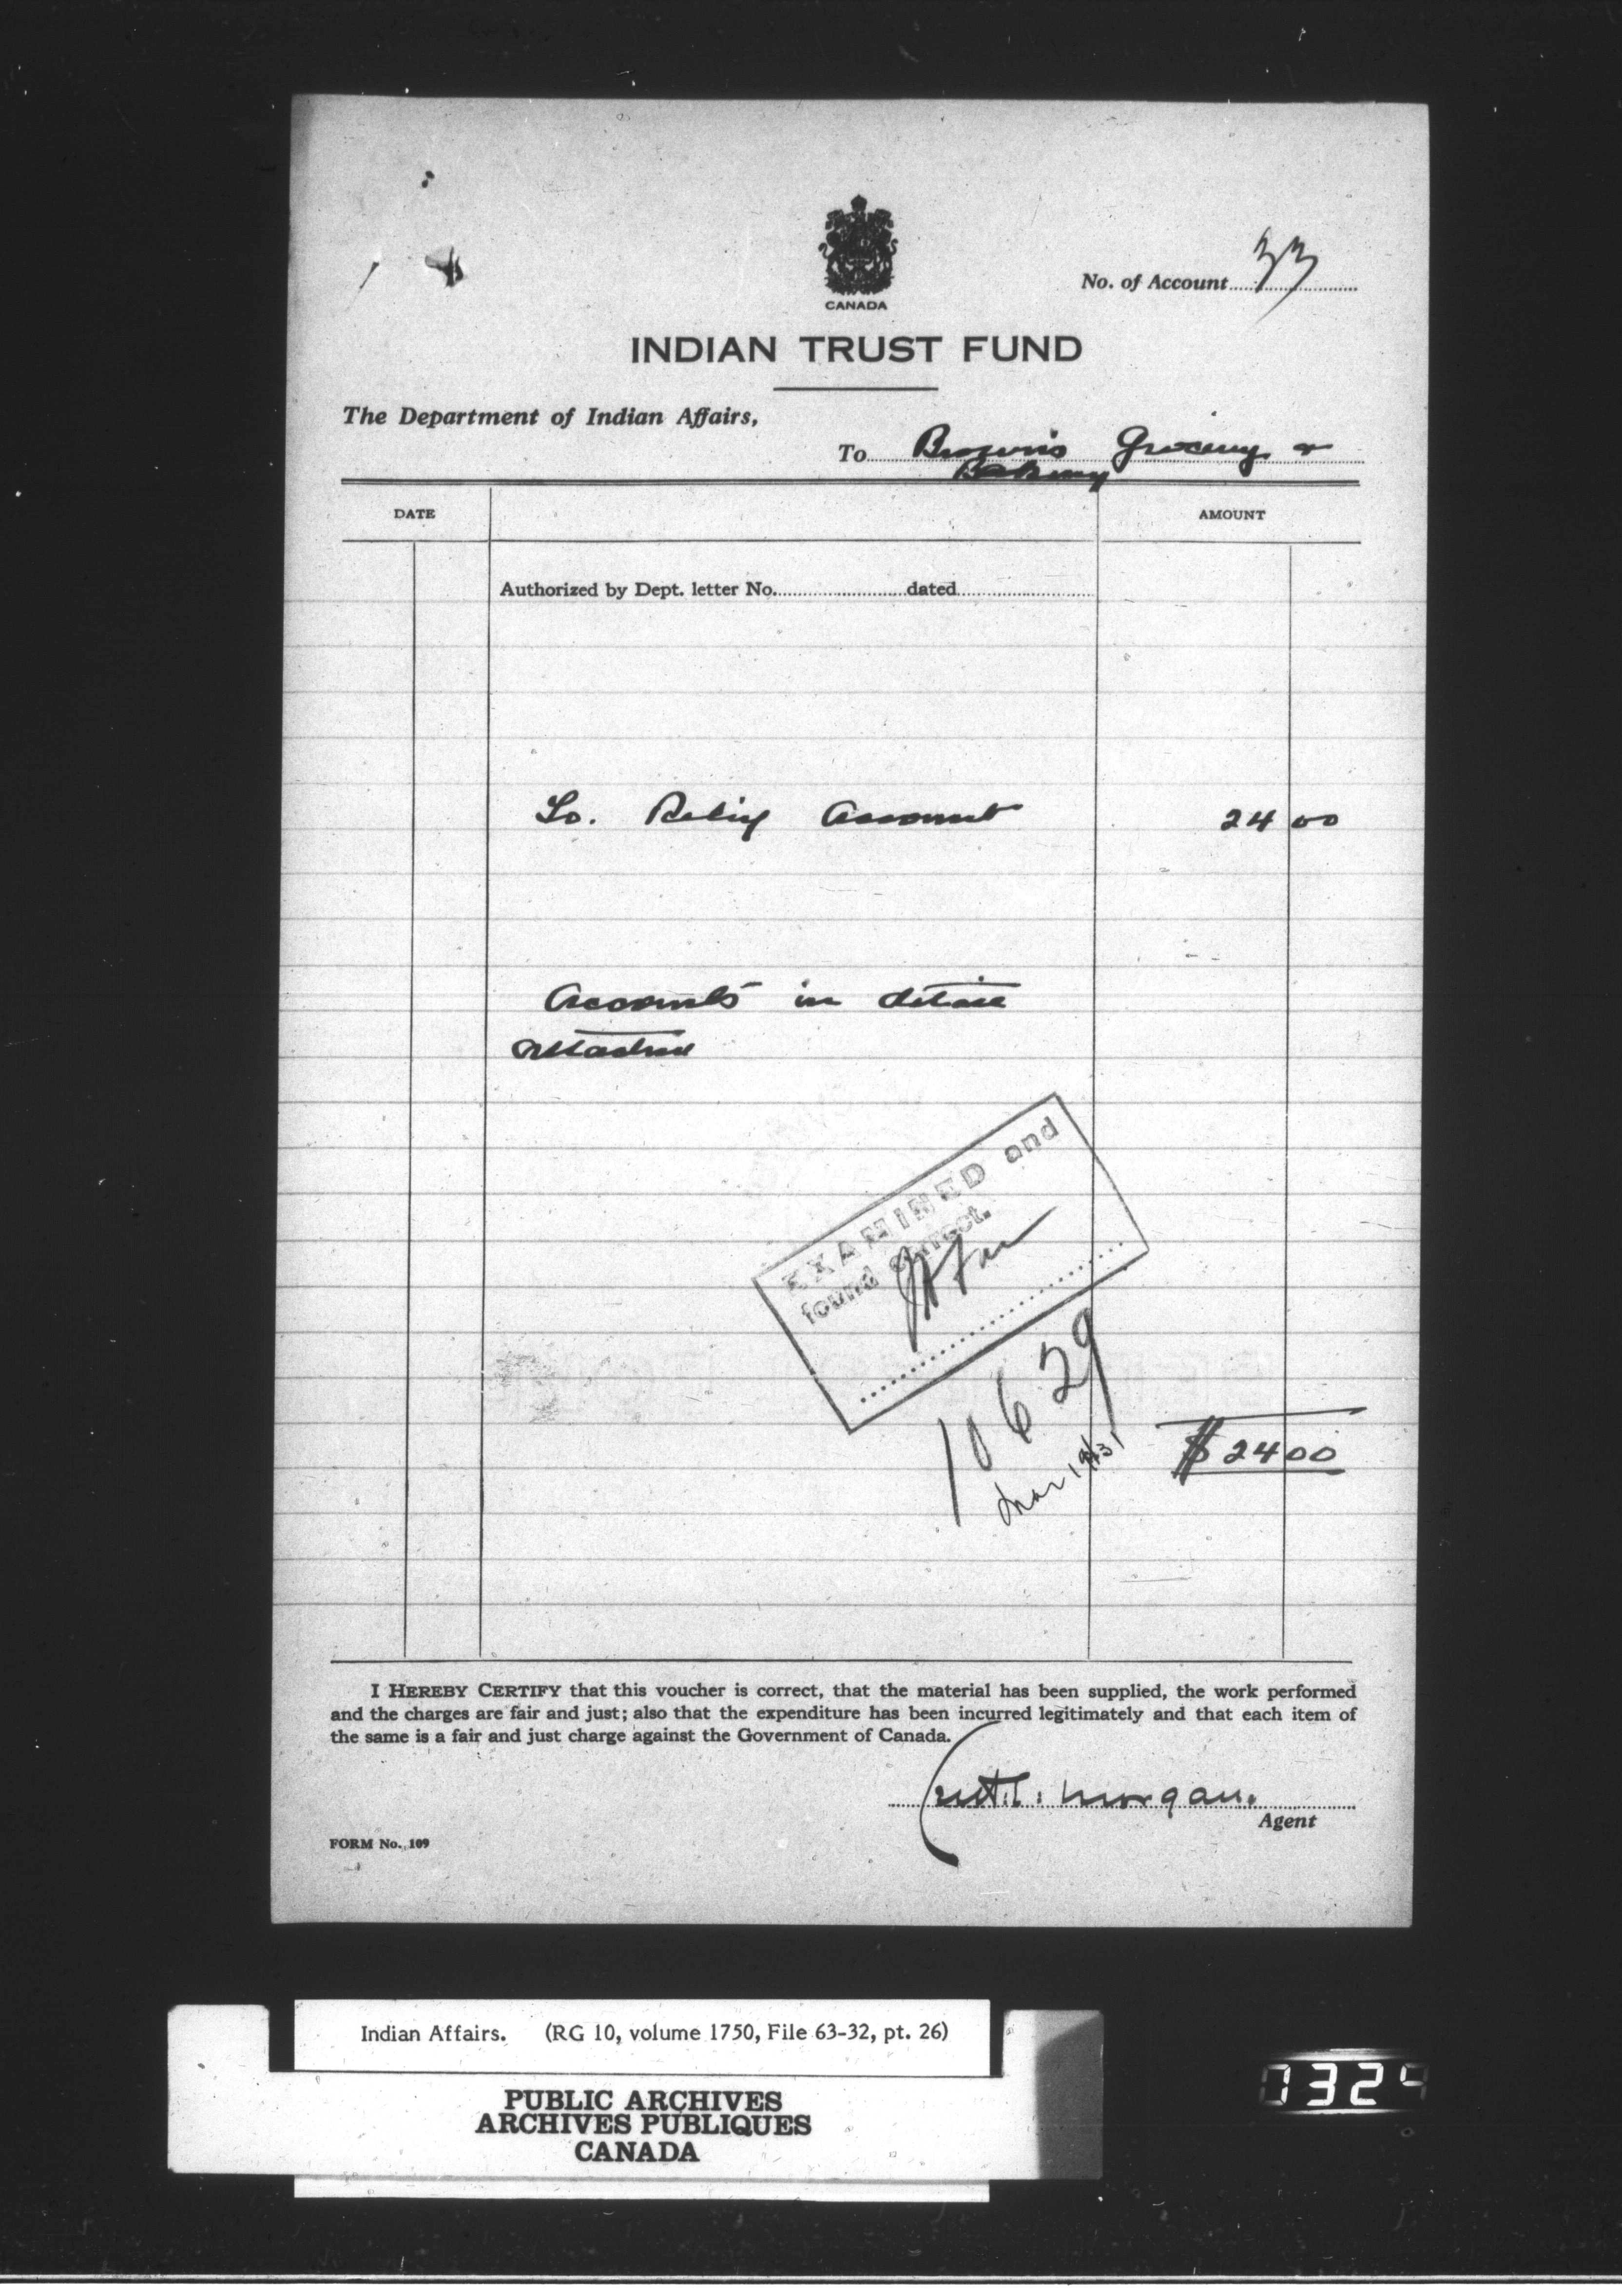 CANADA
No. of Account 33
INDIAN TRUST FUND
The Department of Indian Affairs,
To Brown's Grocery &
Bakery
DATE
AMOUNT
Authorized by Dept. letter No. dated
To. Relief Account 24 00
Accounts in detail
attached
EXAMINED and
found correct.
10629
Mar 19/31
$ 24 00
I HEREBY CERTIFY that this voucher is correct, that the material has been supplied, the work performed
and the charges are fair and just; also that the expenditure has been incurred legitimately and that each item of
the same is a fair and just charge against the Government of Canada.
Morgan.
Agent
FORM No. 109
Indian Affairs. (RG 10, volume 1750, File 63-32, pt. 26)
PUBLIC ARCHIVES
ARCHIVES PUBLIQUES
CANADA